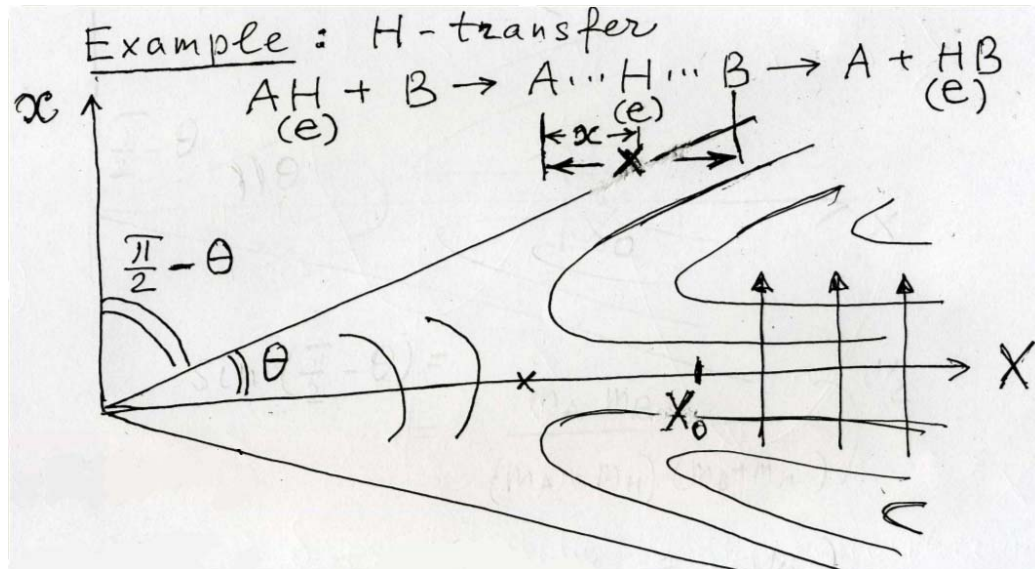 Example: H-transfer
AH + B → A ... H ... B → A + HB
(e) (e) (e)
x
x
X
π/2 - θ
θ
X
X₀